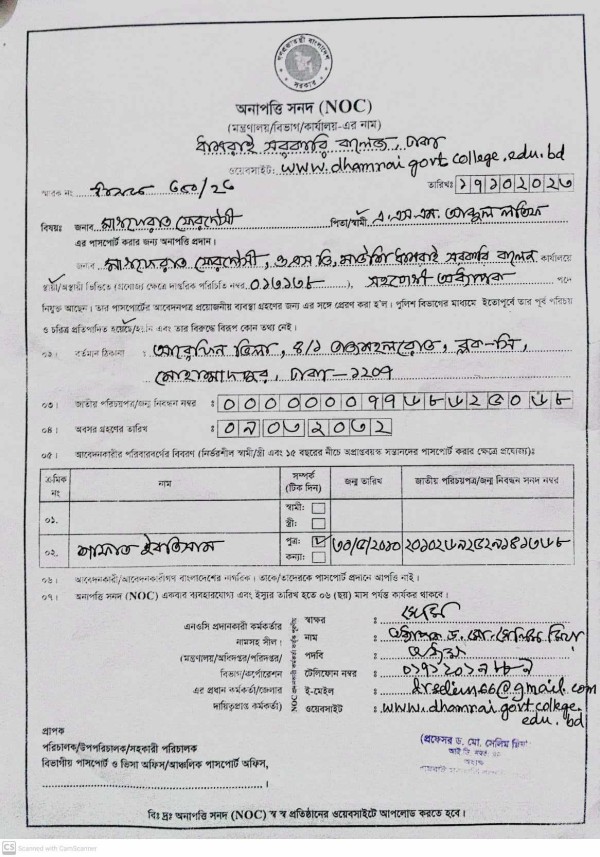 গণপ্রজাতন্ত্রী বাংলাদেশ
সরকার
অনাপত্তি সনদ (NOC)
(মন্ত্রণালয়/বিভাগ/কার্যালয়-এর নাম)
ধামরাই সরকারি কলেজ, ঢাকা
ওয়েবসাইট: www.dhamrai govt college.edu.bd
স্মারক নং
তারিখঃ ১৭১০২০২৩
বিষয়ঃ জনাব মাহফেরাত ফেরদৌসী পিতা/স্বামী এ.এস.এম. আব্দুল লতিফ
এর পাসপোর্ট করার জন্য অনাপত্তি প্রদান।
জনাব মাহফেরাত ফেরদৌসী, ও এস ডি, মাউশি ধামরাই সরকারি কলেজ কার্যালয়ে
স্থায়ী/অস্থায়ী ভিত্তিতে (প্রযোজ্য ক্ষেত্রে দাপ্তরিক পরিচিতি নম্বর ), সহযোগী অধ্যাপক পদে
নিযুক্ত আছেন। তার পাসপোর্টের আবেদনপত্র প্রয়োজনীয় ব্যবস্থা গ্রহণের জন্য এর সঙ্গে প্রেরণ করা হ'ল। পুলিশ বিভাগের মাধ্যমে ইতোপূর্বে তার পূর্ব পরিচয়
ও চরিত্র প্রতিপাদিত হয়েছে/হয়নি এবং তার বিরুদ্ধে বিরূপ কোন তথ্য নেই।
০২। বর্তমান ঠিকানা : ভিলা, ৪/১ তাজমহলরোড, ব্লক-সি,
মোহাম্মদপুর, ঢাকা-১২০৭
০৩। জাতীয় পরিচয়পত্র/জন্ম নিবন্ধন নম্বর :
০৪। অবসর গ্রহণের তারিখ :
০৫। আবেদনকারীর পরিবারবর্গের বিবরণ (নির্ভরশীল স্বামী/স্ত্রী এবং ১৫ বছরের নীচে অপ্রাপ্তবয়স্ক সন্তানদের পাসপোর্ট করার ক্ষেত্রে প্রযোজ্য)ঃ
ক্রমিক নং নাম সম্পর্ক (টিক দিন) জন্ম তারিখ জাতীয় পরিচয়পত্র/জন্ম নিবন্ধন সনদ নম্বর
০১. স্বামী:
স্ত্রী:
০২. পুত্র: ৩০/৫/২০১০
কন্যা:
০৬। আবেদনকারী/আবেদনকারীগণ বাংলাদেশের নাগরিক। তাকে/তাদেরকে পাসপোর্ট প্রদানে আপত্তি নাই।
০৭। অনাপত্তি সনদ (NOC) একবার ব্যবহারযোগ্য এবং ইস্যুর তারিখ হতে ০৬ (ছয়) মাস পর্যন্ত কার্যকর থাকবে।
এনওসি প্রদানকারী কর্মকর্তার
নামসহ সীল।
(মন্ত্রণালয়/অধিদপ্তর/পরিদপ্তর/
বিভাগ/কর্পোরেশন
এর প্রধান কর্মকর্তা/জেলার
দায়িত্বপ্রাপ্ত কর্মকর্তা)
স্বাক্ষর :
নাম : অধ্যাপক ড. মো. সেলিম মিয়া
পদবি : অধ্যক্ষ
টেলিফোন নম্বর :
ই-মেইল : drselim66@gmail.com
ওয়েবসাইট : www.dhamrai govt college.
edu.bd
প্রাপক
পরিচালক/উপপরিচালক/সহকারী পরিচালক
বিভাগীয় পাসপোর্ট ও ভিসা অফিস/আঞ্চলিক পাসপোর্ট অফিস,
(প্রফেসর ড. মো. সেলিম মিয়া
অধ্যক্ষ
বিঃ দ্রঃ অনাপত্তি সনদ (NOC) স্ব স্ব প্রতিষ্ঠানের ওয়েবসাইটে আপলোড করতে হবে।
CS Scanned with CamScanner